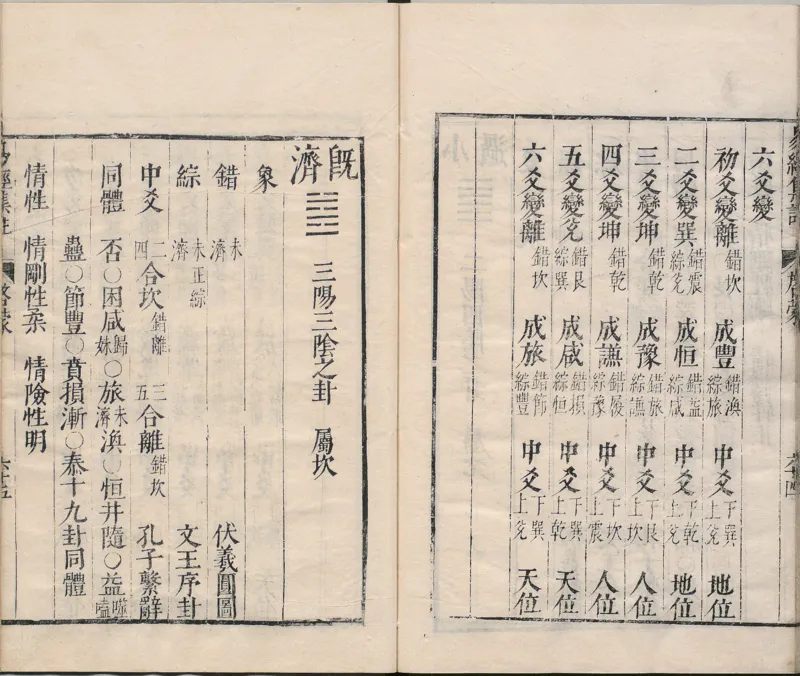 六爻變
初爻變離 錯坎 成豐 錯渙綜旅 中爻 下巽上兌 地位
二爻變巽 錯震綜兌 成恒 錯益綜咸 中爻 下乾上兌 地位
三爻變坤 錯乾 成豫 錯綜謙 中爻 下艮上坎 人位
四爻變坤 錯乾 成謙 錯履綜豫 中爻 下坎上震 人位
五爻變兌 錯艮綜巽 成咸 錯損綜恒 中爻 下巽上乾 天位
六爻變離 錯坎 成旅 錯節綜豐 中爻 下巽上兌 天位
既濟 ䷾ 三陽三陰之卦 屬坎
象
錯 未濟 伏羲圓圖
綜 未正綜濟 文王序卦
中爻 二四合坎 錯離 三五合離 錯坎 孔子繫辭
同體 否○困咸歸妹○旅未濟渙○恒井隨○益噬嗑
蠱○節豐○賁損漸○泰十九卦同體
情性 情剛性柔 情險性明
易經集註 六十五